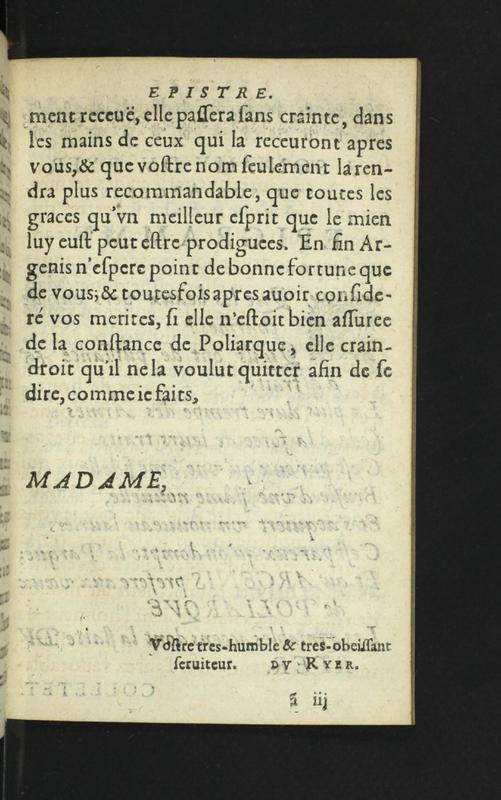 EPISTRE.
ment receuë, elle paſſera ſans crainte, dans
les mains de ceux qui la receuront apres
vous, & que voſtre nom ſeulement la ren-
dra plus recommandable, que toutes les
graces qu'vn meilleur eſprit que le mien
luy euſt peut eſtre prodiguees. En fin Ar-
genis n'eſpere point de bonne fortune que
de vous; & toutesfois apres auoir conſide-
ré vos merites, ſi elle n'eſtoit bien aſſuree
de la conſtance de Poliarque, elle crain-
droit qu'il ne la voulut quitter afin de ſe
dire, comme ie faits,
MADAME,
Voſtre tres-humble & tres-obeiſſant
ſeruiteur. DV RYER.
ã iij